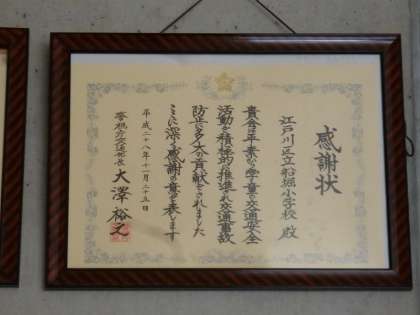 感謝状
江戸川区立船堀小学校 殿
貴会は平素から学童の交通安全
活動を積極的に推進され交通事故
防止に多大な貢献をされました
ここに深く感謝の意を表します
平成二十八年十一月二十五日
警視庁交通部長 大澤裕之